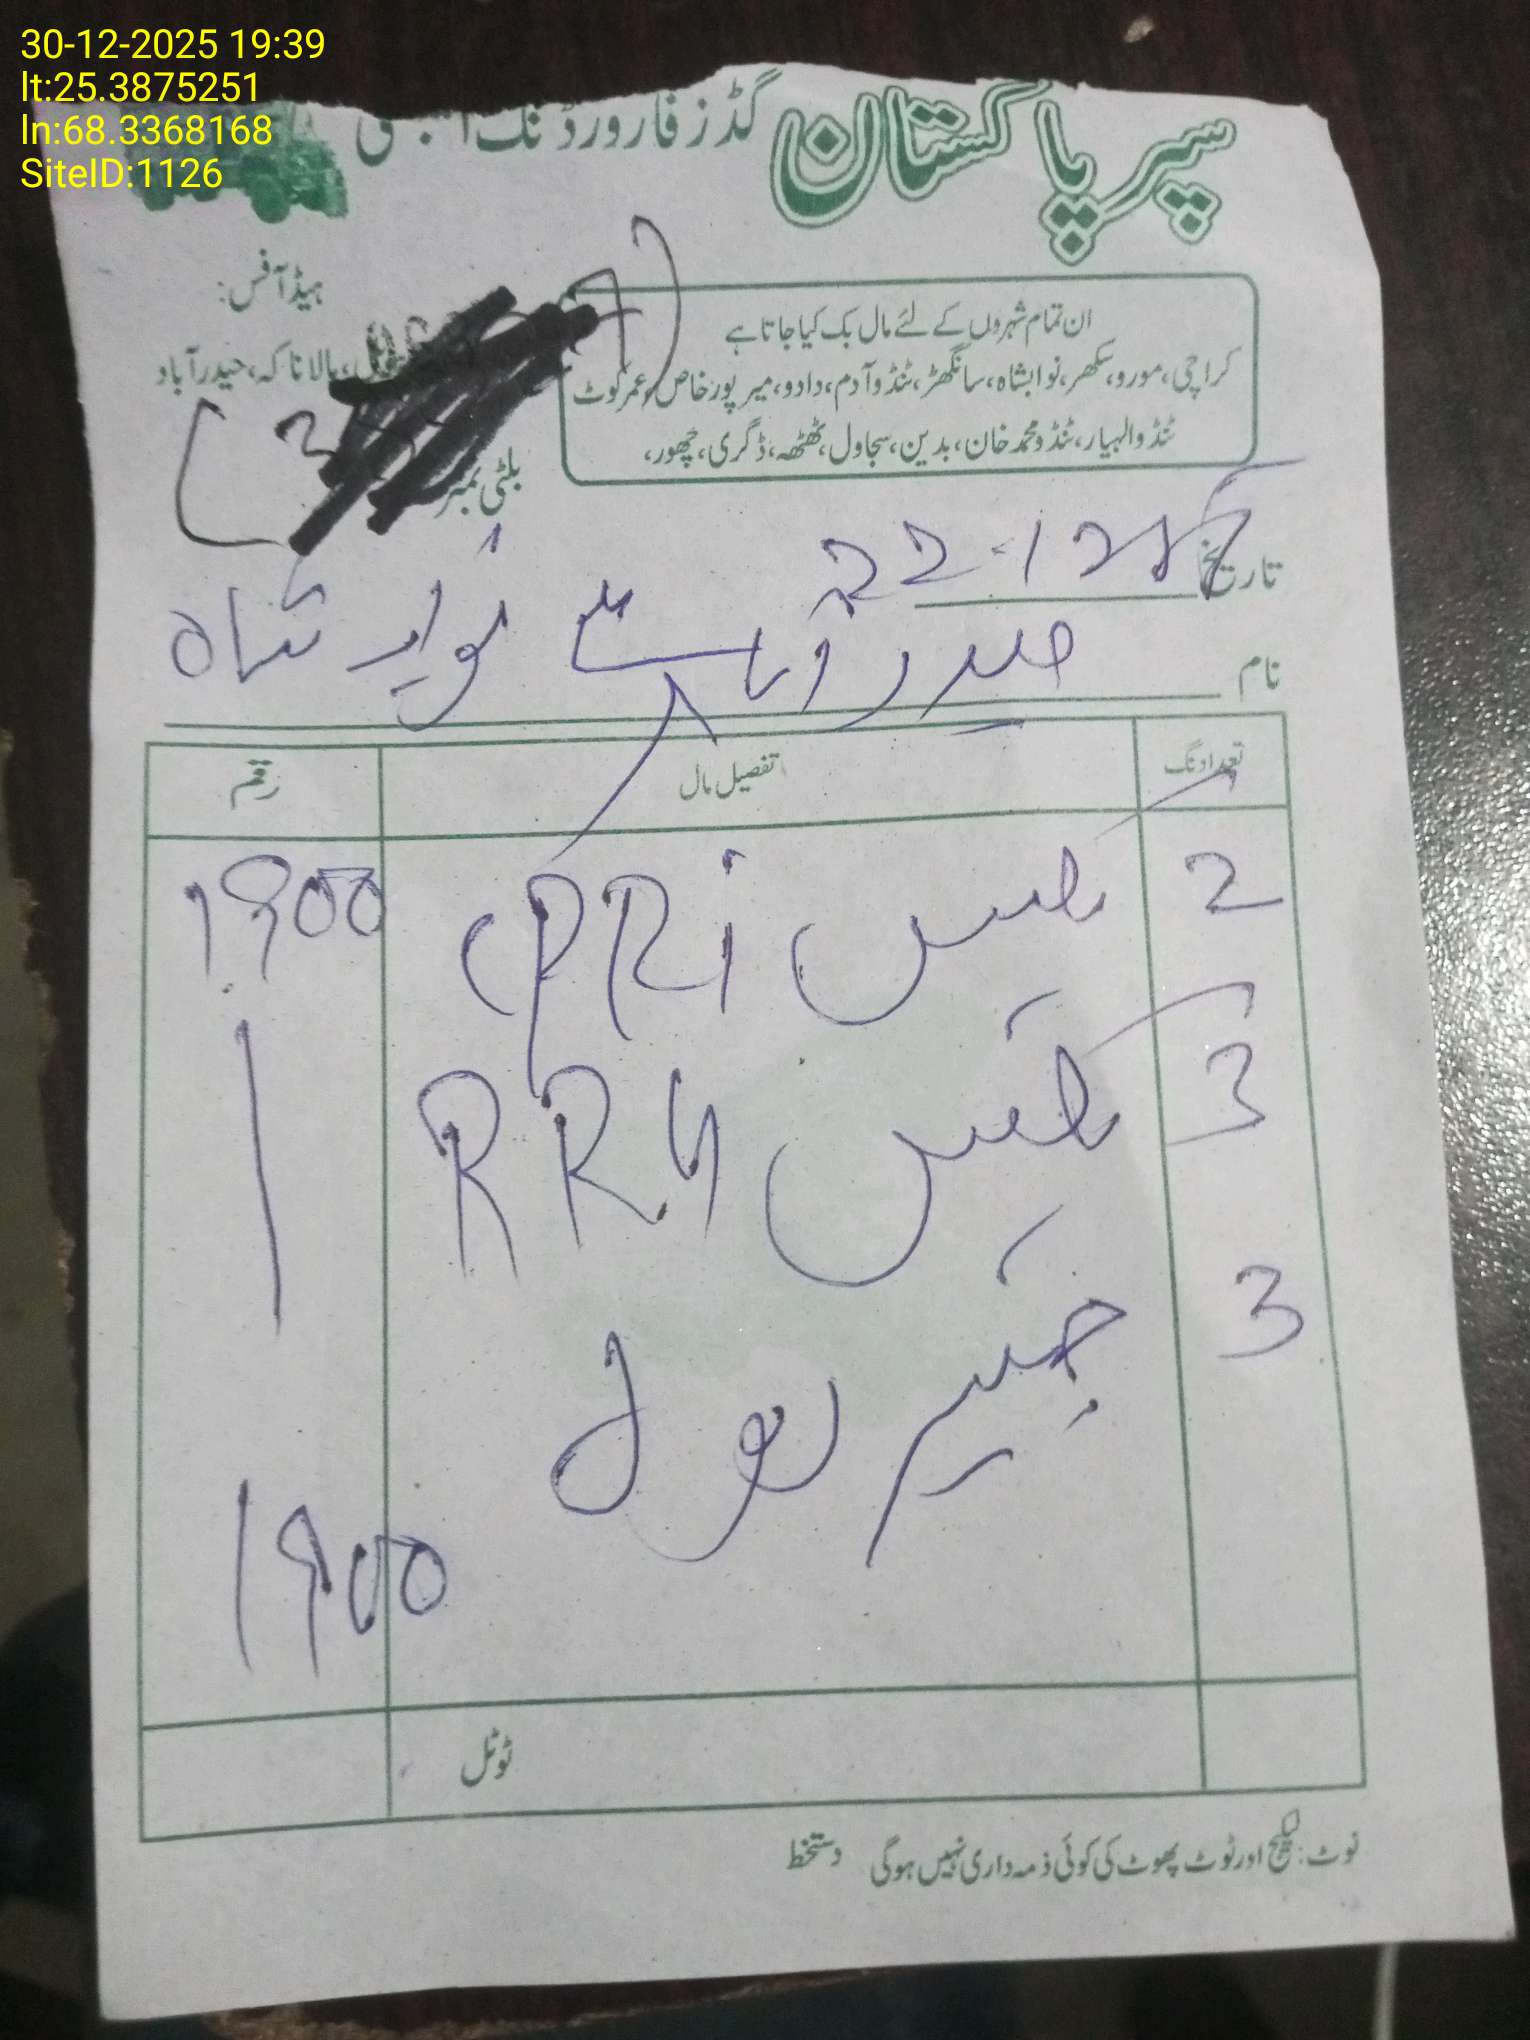 30-12-2025 19:39
lt:25.3875251
ln:68.3368168
SiteID:1126
سپر پاکستان گڈز فارورڈنگ
ہیڈ آفس:
ہالا ناکہ، حیدرآباد
ان تمام شہروں کے لئے مال بک کیا جاتا ہے
کراچی، مورو، سکھر، نوابشاہ، سانگھڑ، ٹنڈو آدم، دادو، میرپورخاص، عمرکوٹ
ٹنڈوالہیار، ٹنڈومحمدخان، بدین، سجاول، ٹھٹھہ، ڈگری، چھور،
بلٹی نمبر
تاریخ 22-12
نام
حیدرآباد سے نواب شاہ
تعداد نگ تفصیل مال رقم
2 کیس CPRI 1900
3 کیس RRU
3 جنیر بول
1900
ٹوٹل
نوٹ: لیکیج اور ٹوٹ پھوٹ کی کوئی ذمہ داری نہیں ہوگی دستخط